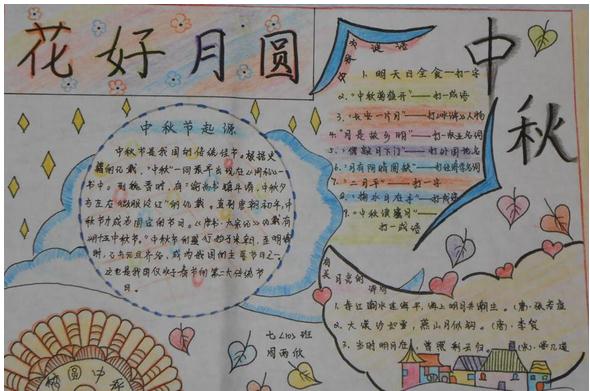 花好月圆
中秋
中秋节起源
中秋节是我国的传统佳节。根据史
籍的记载，“中秋”一词最早出现在《周礼》一
书中。到魏晋时，有“谕尚书镇牛渚，中秋夕
与左右微服泛江”的记载。直到唐朝初年，中
秋节才成为固定的节日。《唐书·太宗记》记载有
“八月十五中秋节”。中秋节的盛行始于宋朝，至明清
时，已与元旦齐名，成为我国的主要节日之一。
这也是我国仅次于春节的第二大传统节
日。
中秋 谜语
1. 明天日全食—打一字
2. “中秋菊盛开”——打一成语
3. “长安一片月”——打《水浒》人物
4. “月是故乡明”——打一
5. “僧敲月下门”——打外国地名
6. “月有阴晴圆缺”——打经济学名词
7. “二月平”——打一字
8. “掬水月在手”——打
9. “中秋
打一成语
有关月亮的诗词
1. 春江潮水连海平，海上明月共潮生。（唐·张若虚
2. 大漠沙如雪，燕山月似钩。（唐·李贺
3. 当时明月在，曾照彩云归。（宋·晏几道
七
班
周雨欣
圆中秋